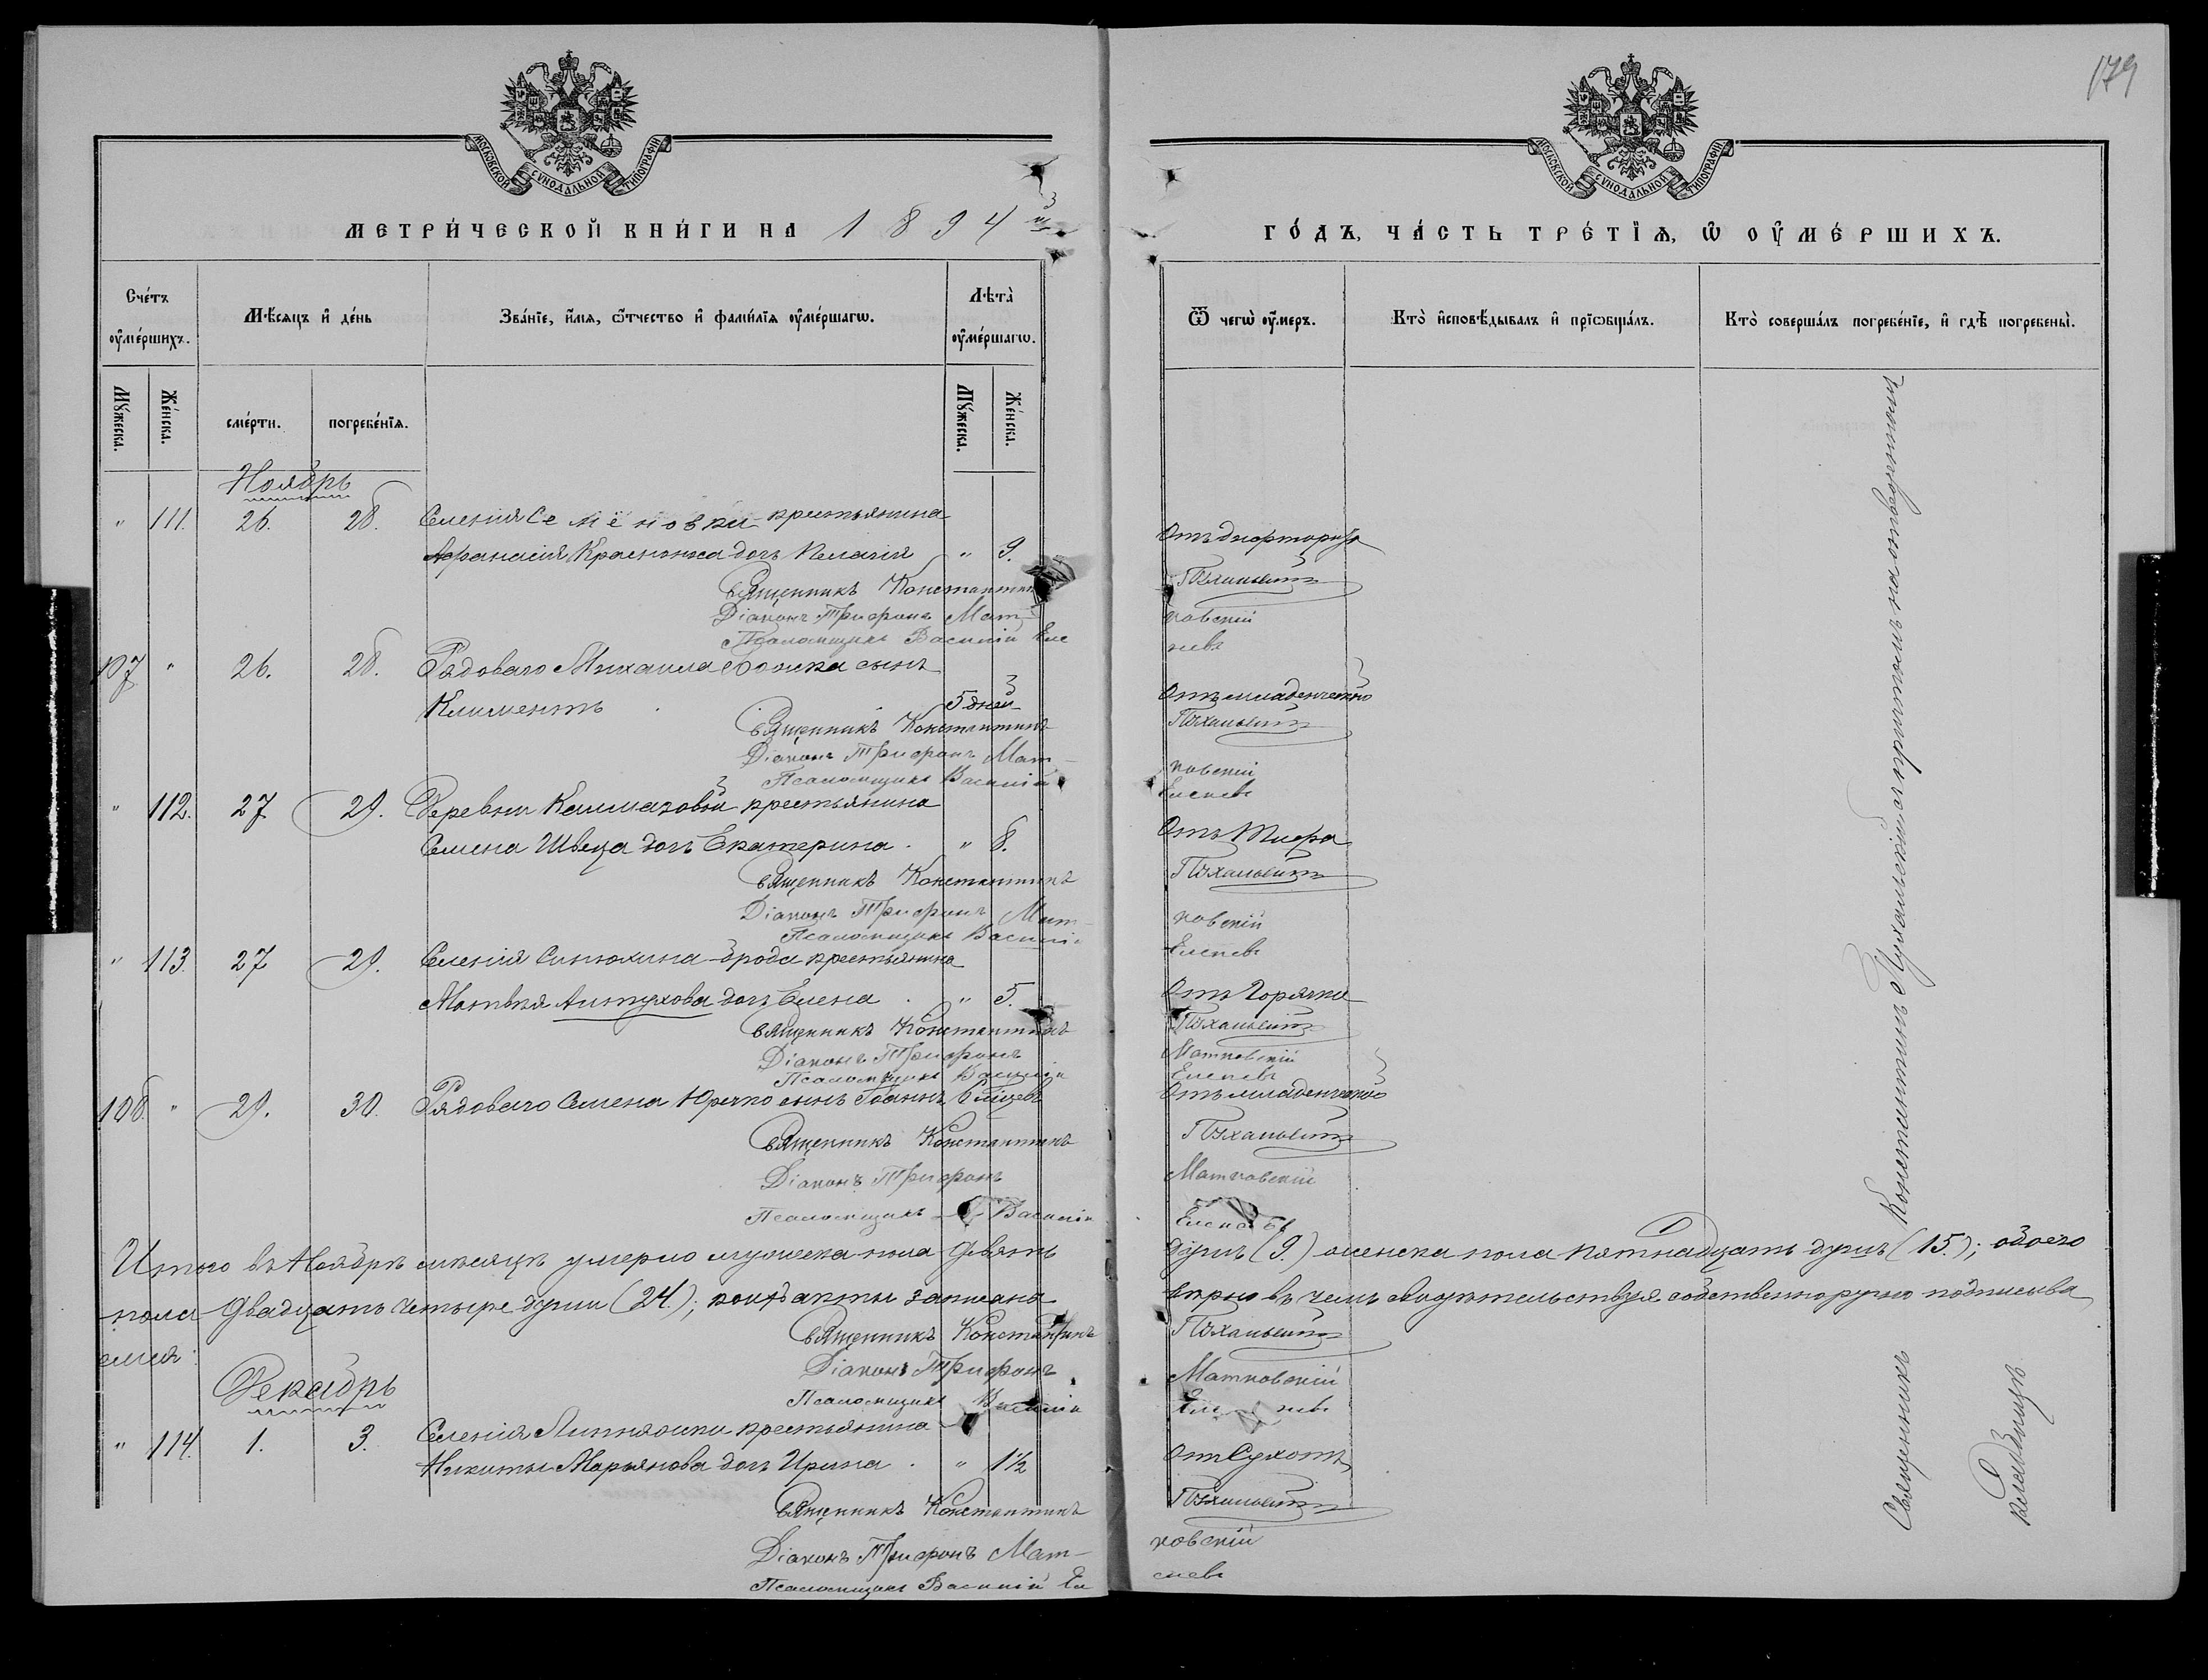 179
МОСКОВСКОЙ СѴНОДАЛЬНОЙ ТИПОГРАФІИ
МОСКОВСКОЙ СѴНОДАЛЬНОЙ ТИПОГРАФІИ
МЕТРИ́ЧЕСКОЙ КНИ́ГИ НА 1894й
ГО́ДЪ, ЧА́СТЬ ТРЕ́ТІѦ, Ѡ ОУ҆МЕ́РШИХЪ.
Сче́тъ оу҆ме́ршихъ.
Мѣ́сяцъ и҆ де́нь
Зва́ніе, и҆́мя, ѻ҆́тчество и҆ фами́лїя оу҆ме́ршагѡ.
Лѣта̀ оу҆ме́ршагѡ.
Ѿ чегѡ̀ оу҆́меръ.
Кто̀ и҆сповѣ́дывалъ и҆ прїѡбща́лъ.
Кто̀ соверша́лъ погребе́нїе, и҆ гдѣ̀ погребены̀.
Мꙋ́жеска.
Же́нска.
сме́рти.
погребе́нїя.
Мꙋ́жеска.
Же́нска.
Ноябрь
" 111. 26. 28. Селенія Семёновки крестьянина
Афанасія Красножа дочь Пелагія " 9. Отъ дифторита
Священникъ Константинъ Пухальскій
Діаконъ Трифонъ Матковскій
Псаломщикъ Василій Еленевъ
107 " 26. 28. Рядоваго Михаила Божка сынъ
Климентъ 5 дней Отъ младенческой
Священникъ Константинъ Пухальскій
Діаконъ Трифонъ Матковскій
Псаломщикъ Василій Еленевъ
" 112. 27 29. Деревни Калмазовой крестьянина
Семена Швеца дочь Екатерина . " 8. Отъ Тифа
Священникъ Константинъ Пухальскій
Діаконъ Трифонъ Матковскій
Псаломщикъ Василій Еленевъ
" 113. 27 29. Селенія Синюхина-Брода крестьянина
Матвѣя Антухова дочь Елена . " 5. Отъ Горячки
Священникъ Константинъ Пухальскій
Діаконъ Трифонъ Матковскій
Псаломщикъ Василій Еленевъ
108. " 29. 30. Рядоваго Семена Юрчко сынъ Іоаннъ 6 мѣсяцевъ Отъ младенческой
Священникъ Константинъ Пухальскій
Діаконъ Трифонъ Матковскій
Псаломщикъ Василій Еленевъ
Итого въ Ноябрѣ мѣсяцѣ умерло мужеска пола девять душъ (9.) женска пола пятнадцать душъ (15.); обоего
пола двадцать четыре души (24.); акты записана вѣрно въ чемъ свидѣтельствуя собственноручно подписыва
емся:
Священникъ Константинъ Пухальскій
Діаконъ Трифонъ Матковскій
Псаломщикъ Василій Еленевъ
Декабрь
" 114. 1. 3. Селенія Липняжки крестьянина
Никиты Марьянова дочь Ирина . " 1½ Отъ Сухотъ
Священникъ Константинъ Пухальскій
Діаконъ Трифонъ Матковскій
Псаломщикъ Василій Еленевъ
Священникъ Константинъ Пухальскій съ причтомъ на отведенномъ
кладбищѣ